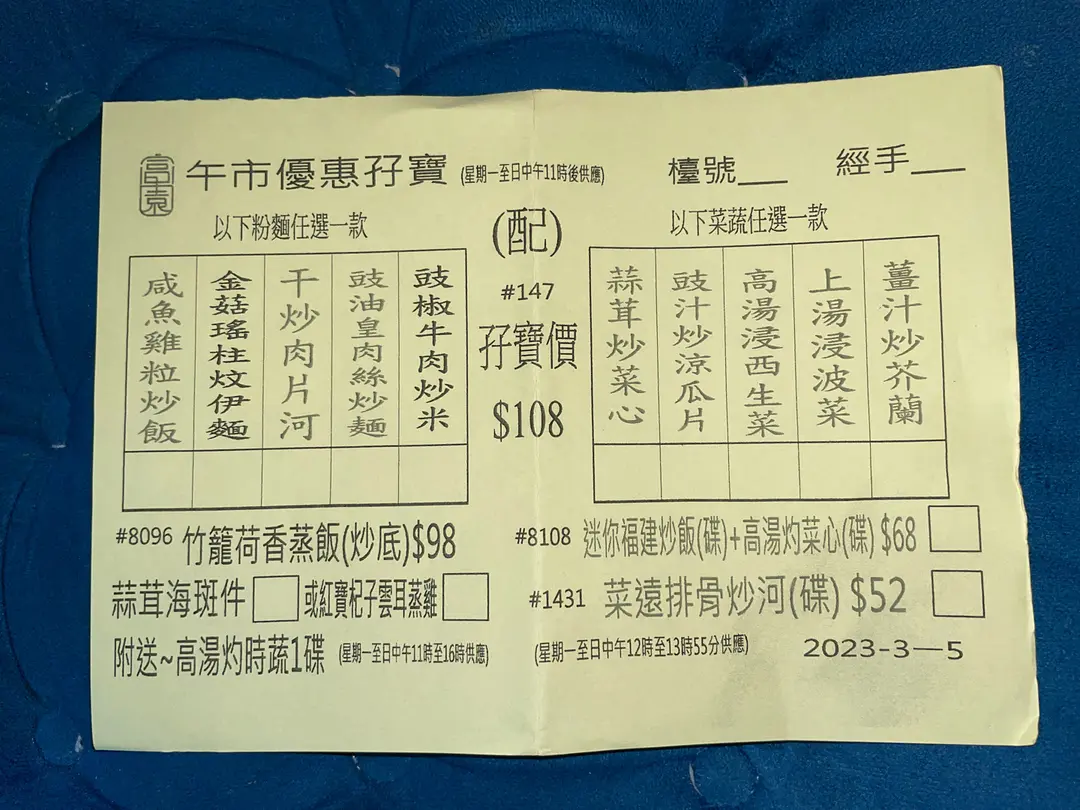 富園
午市優惠孖寶 (星期一至日中午11時後供應)
檯號__ 經手__
以下粉麵任選一款
(配)
以下菜蔬任選一款
咸魚雞粒炒飯
金菇瑤柱炆伊麵
干炒肉片河
豉油皇肉絲炒麵
豉椒牛肉炒米
#147
孖寶價
$108
蒜茸炒菜心
豉汁炒涼瓜片
高湯浸西生菜
上湯浸波菜
薑汁炒芥蘭
#8096 竹籠荷香蒸飯(炒底)$98
蒜茸海斑件 或紅寶杞子雲耳蒸雞
附送~高湯灼時蔬1碟 (星期一至日中午11時至16時供應)
#8108 迷你福建炒飯(碟)+高湯灼菜心(碟) $68
#1431 菜遠排骨炒河(碟) $52
(星期一至日中午12時至13時55分供應) 2023-3—5